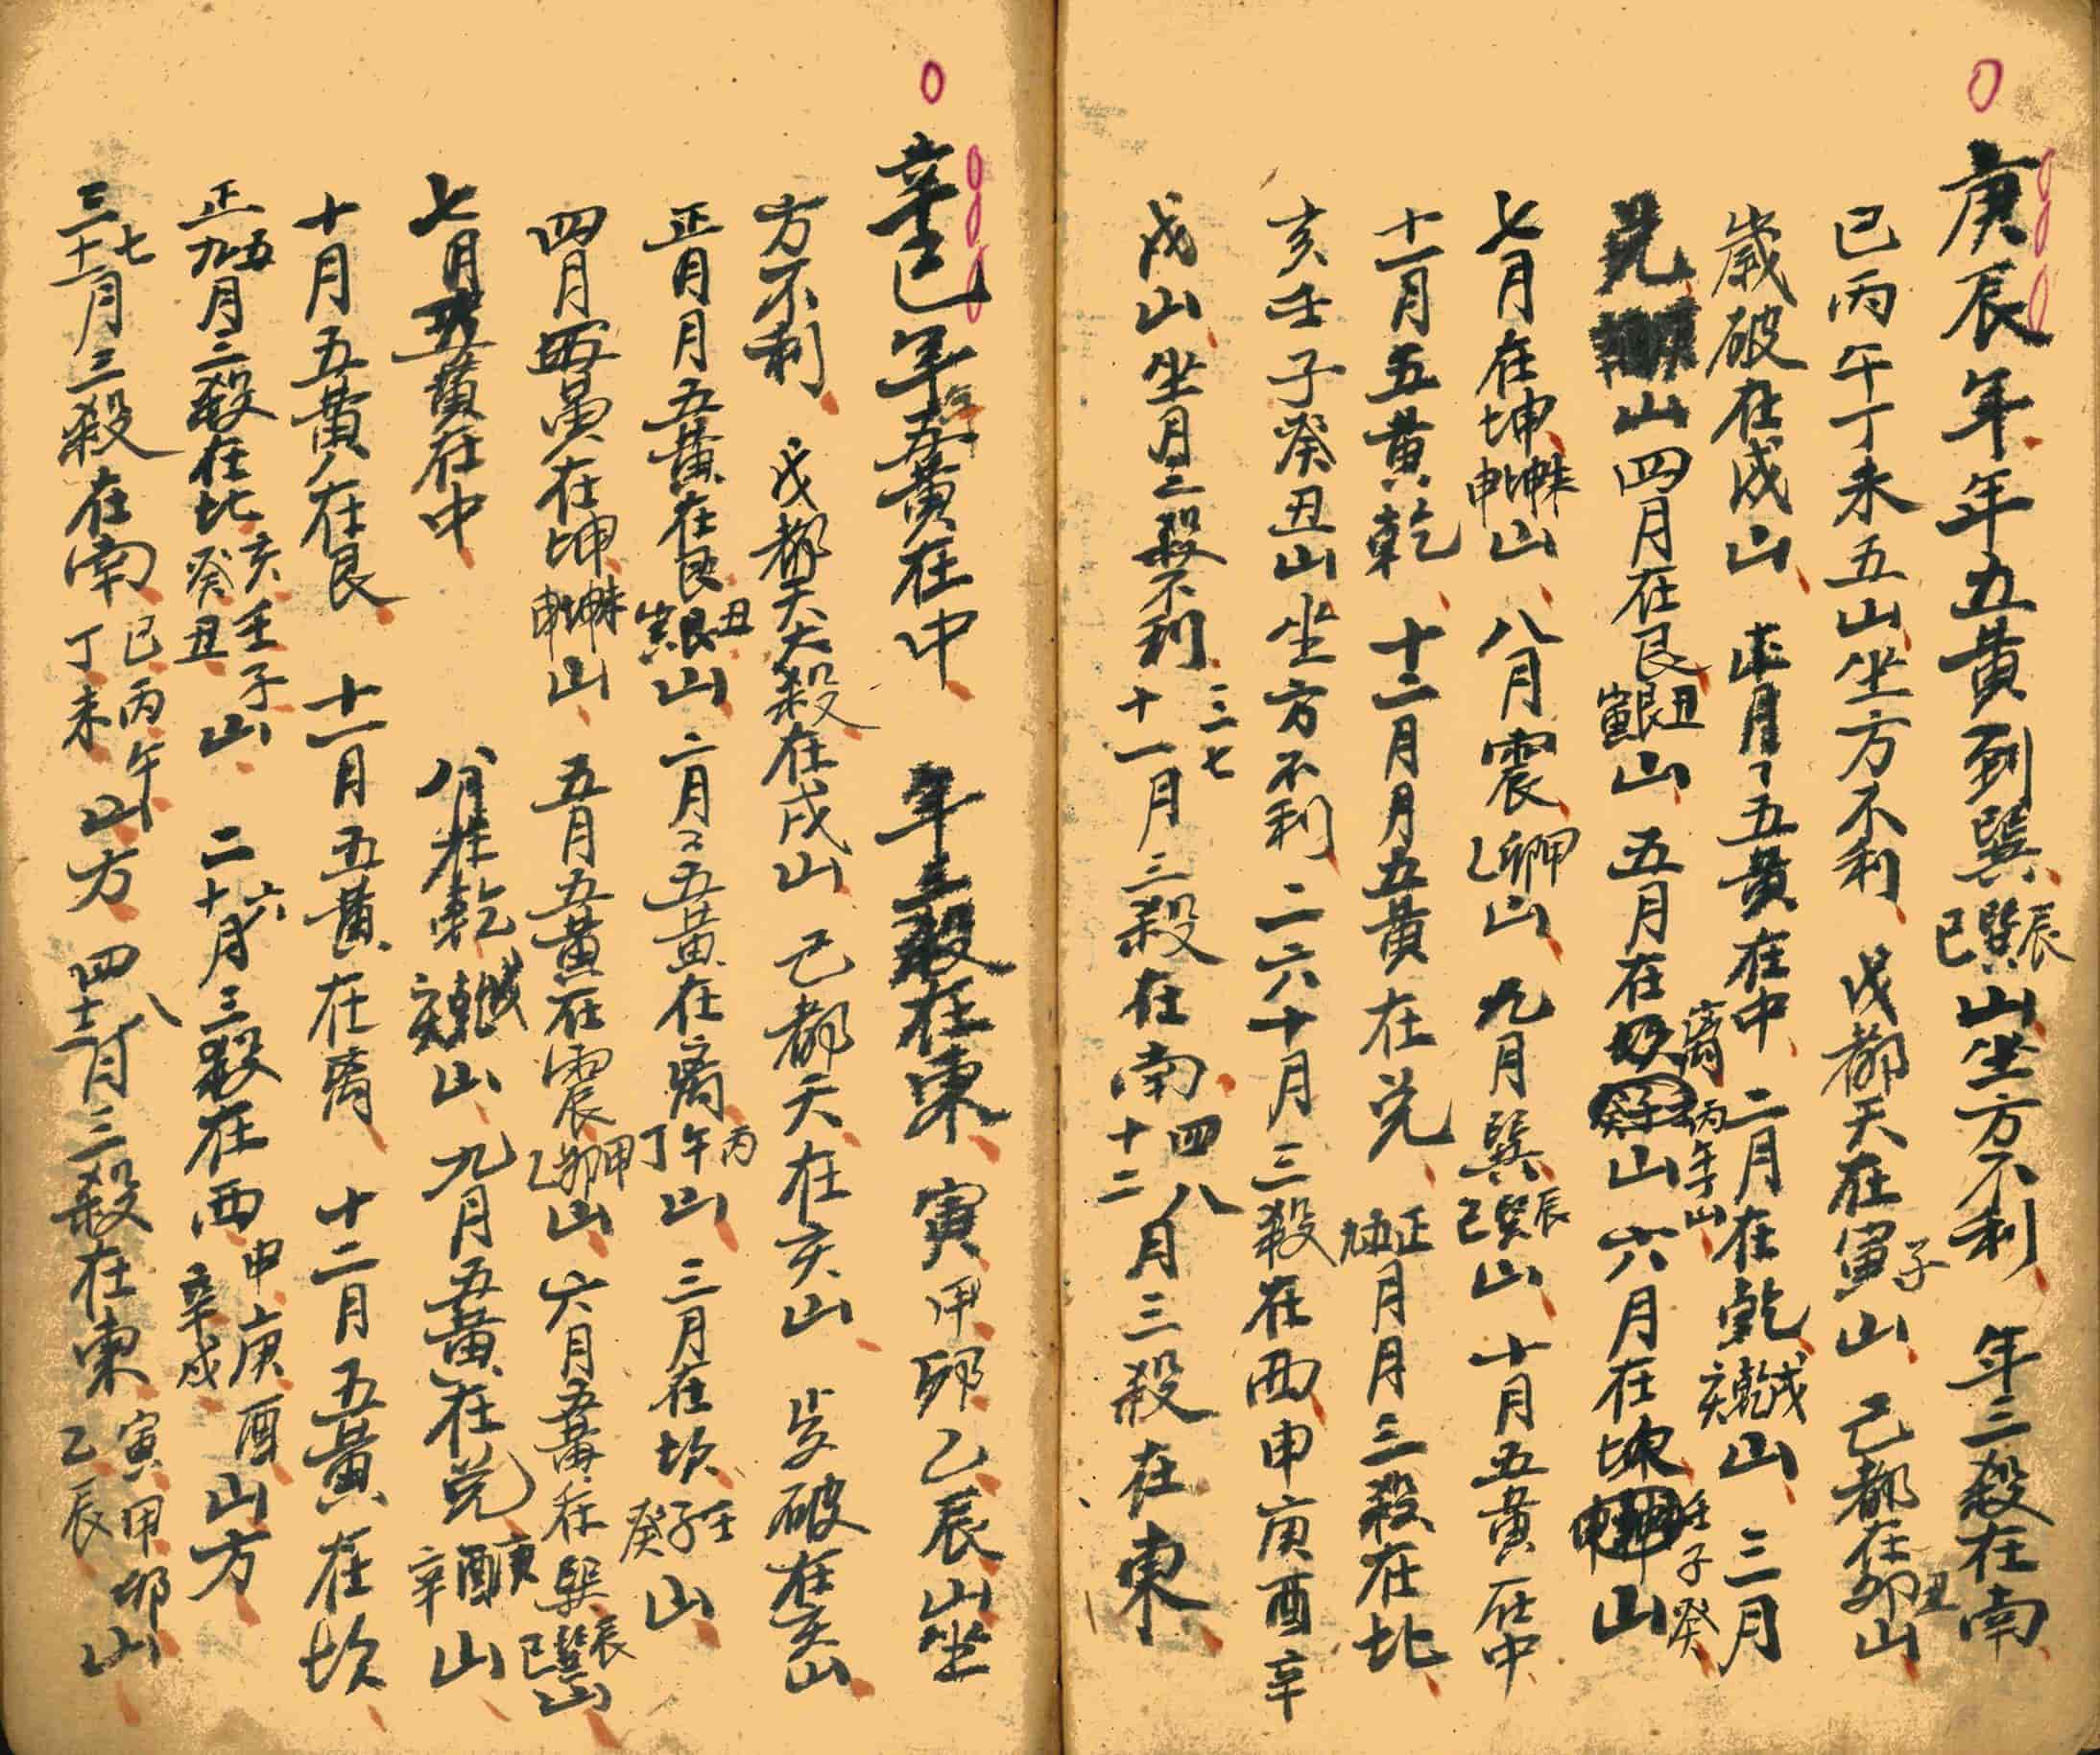 庚辰年年五黄到巽辰巽巳山坐方不利　年三殺在南
巳丙午丁未五山坐方不利　戊都天在寅子山　己都在卯丑山
歲破在戌山　正月五黄在中　二月在乾戌乾亥山　三月
兑山四月在艮丑艮寅山　五月在離丙午丁山　六月在坎壬子癸山
七月在坤未坤申山　八月震甲卯乙山　九月巽辰巽巳山　十月五黄在中
十一月五黄乾　十二月月五黄在兑　正五九月月三殺在北
亥壬子癸丑山坐方不利　二六十月三殺在西申庚酉辛
戌山坐月三殺不利　三七十一月三殺在南　四八十二月三殺在東
辛巳年五黄在中　年三殺在東　寅甲卯乙辰山坐
方不利　戊都天大殺在戌山　己都天在亥山　歲破在亥山
正月月五黄在艮丑艮寅山　二月五黄在離丙午丁山　三月在坎壬子癸山
四月五黄在坤未坤申山　五月五黄在震甲卯乙山　六月五黄在巽辰巽巳山
七月五黄在中　八月在乾戌乾亥山　九月五黄在兑庚酉辛山
十月五黄在艮　十一月五黄在离　十二月五黄在坎
正五九月三殺在北亥壬子癸丑山　二六十月三殺在西申庚酉辛戌山方
三七十一月三殺在南巳丙午丁未山方　四八十二月三殺在東寅甲卯乙辰山